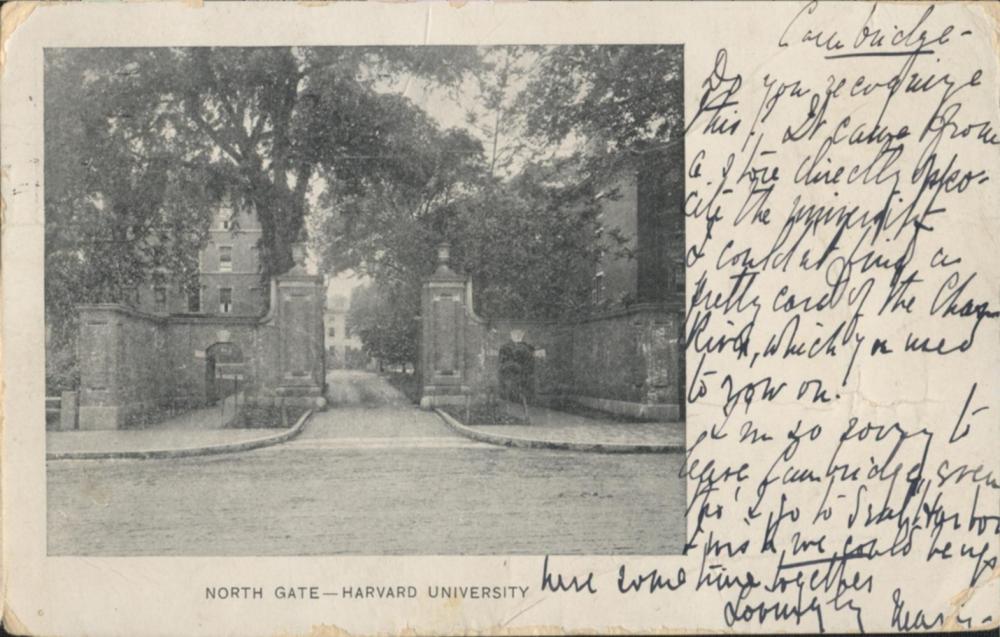 Cambridge-
Do you recognize
this? It came from
a store directly oppo-
cite the university
I could n't find as
pretty card of the Chas.
River, which you used
to row on.
I 'm so sorry to
leave Cambridge, even
tho' I go to Seal Harbor
I wish we could be up
here some time together
Lovingly
NORTH GATE—HARVARD UNIVERSITY